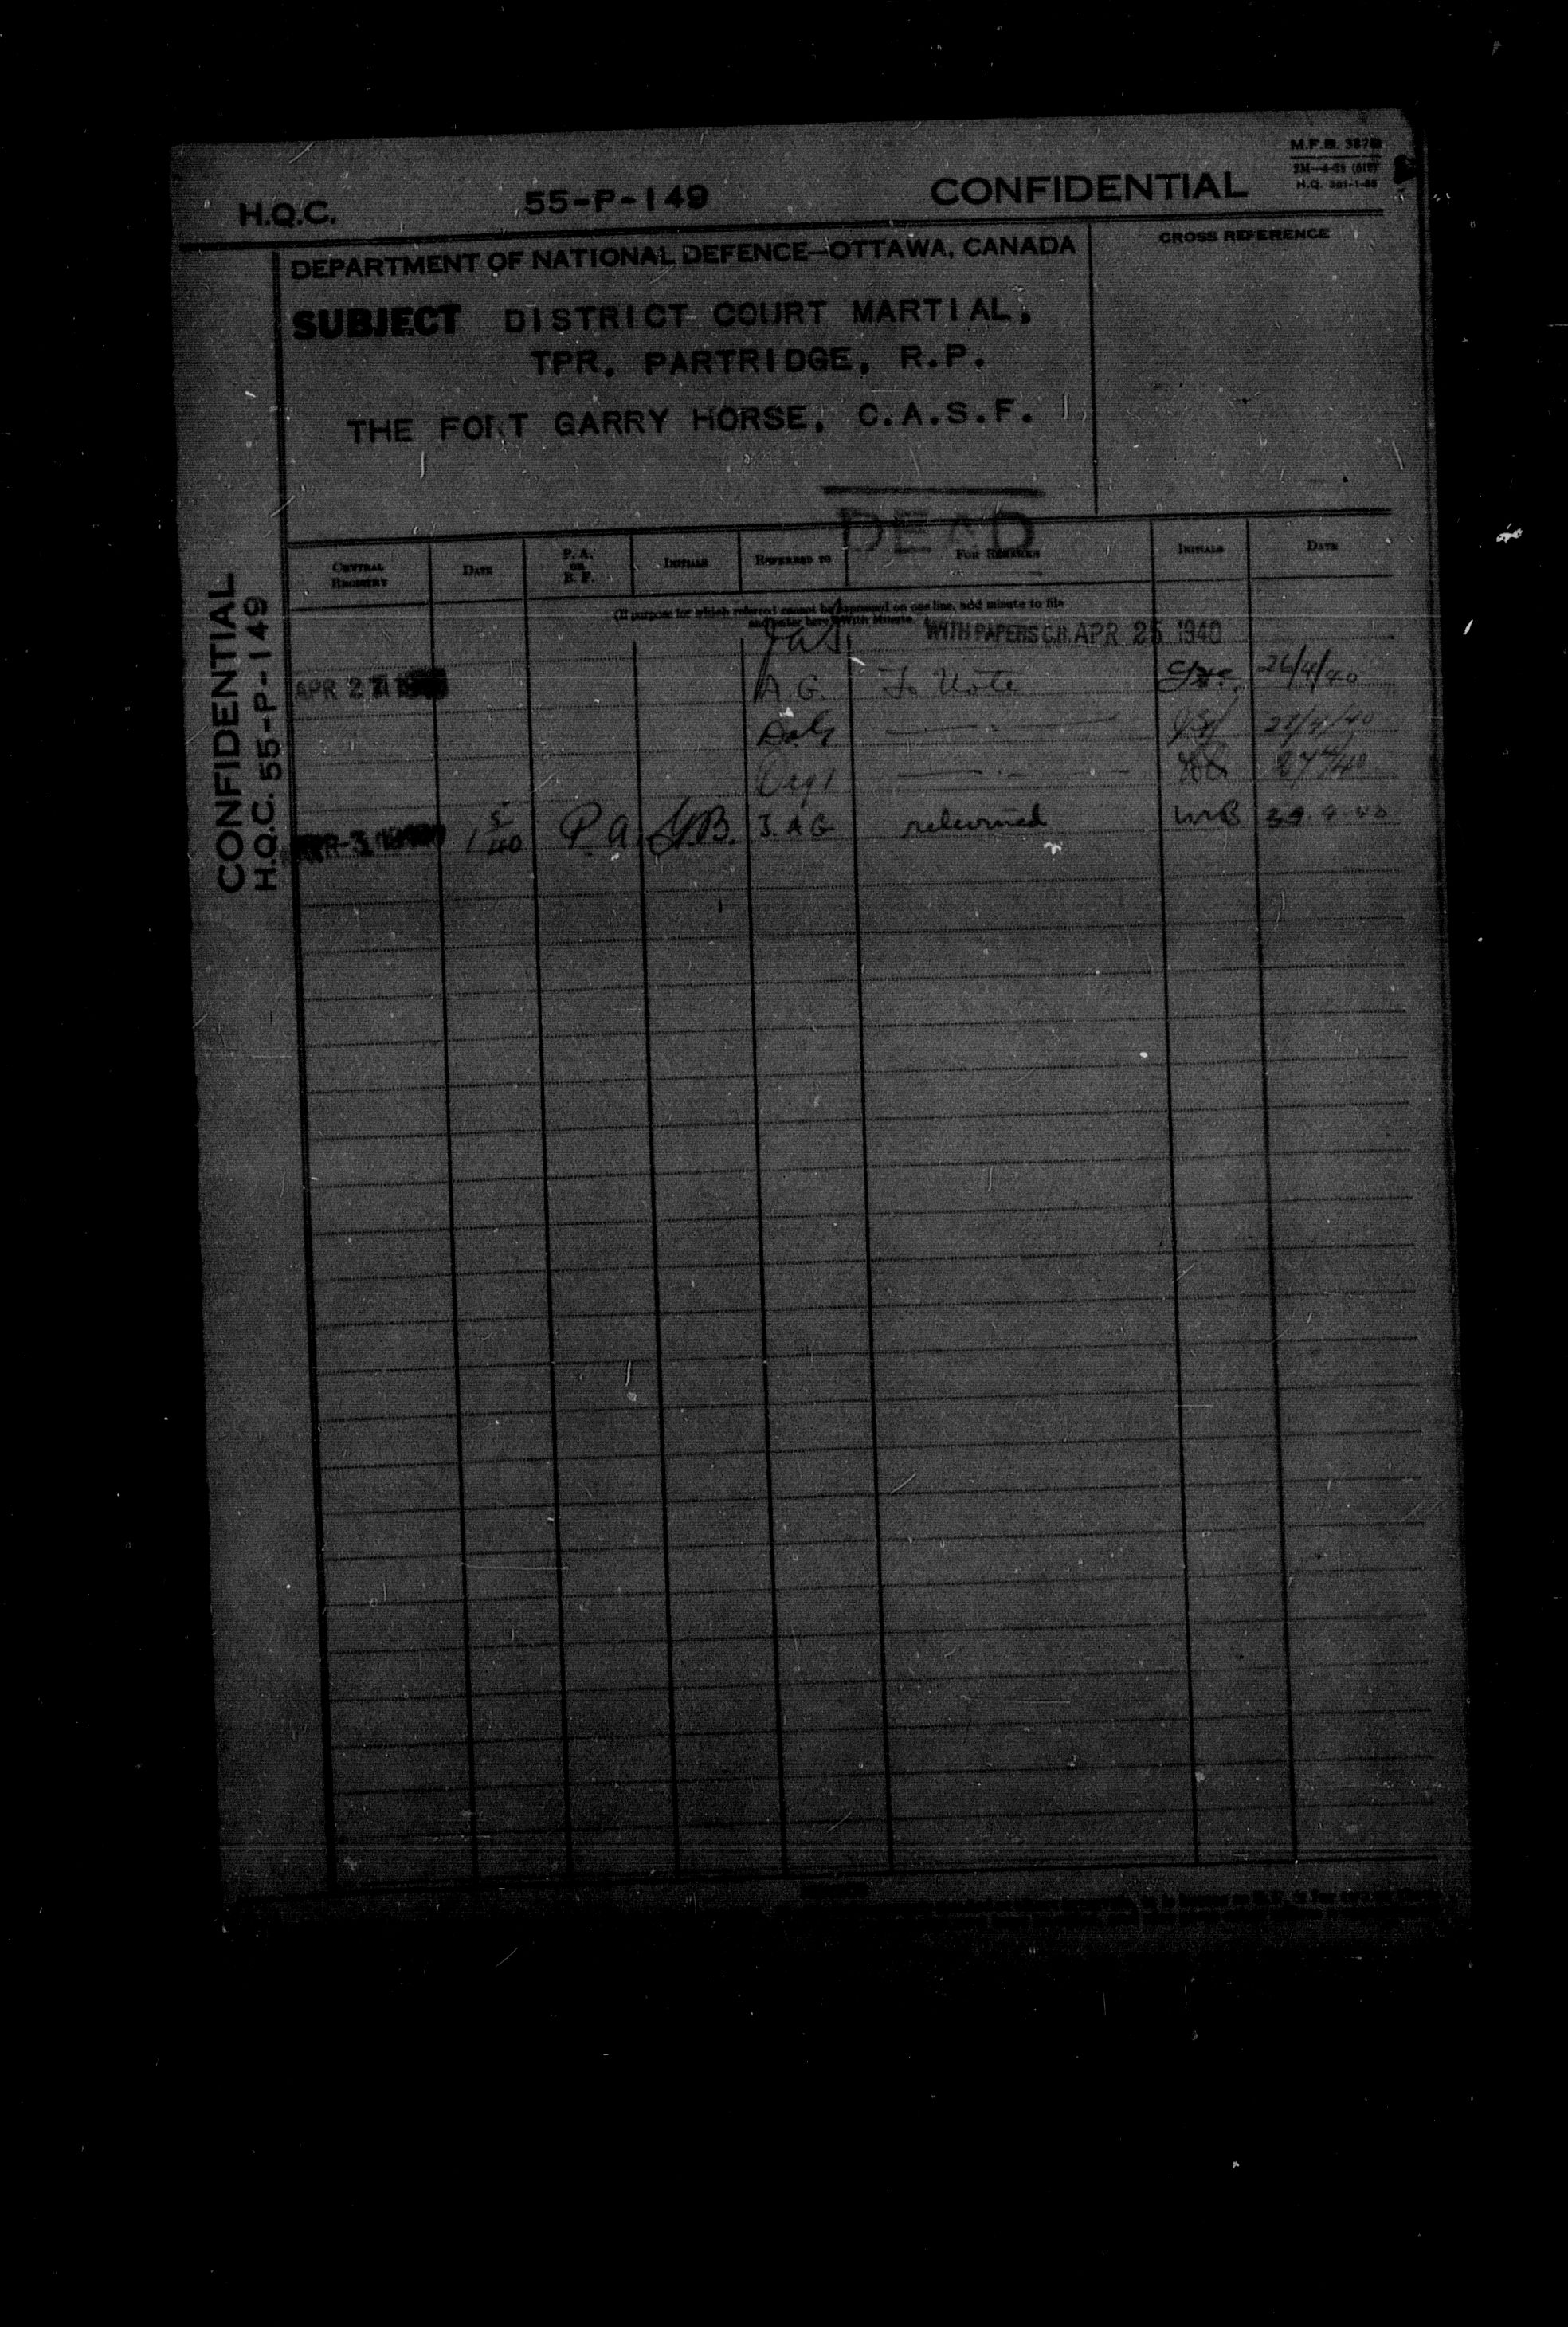 M.F.B.
H.Q.C. 55-P-149 CONFIDENTIAL
DEPARTMENT OF NATIONAL DEFENCE—OTTAWA, CANADA
CROSS REFERENCE
SUBJECT DISTRICT COURT MARTIAL,
TPR. PARTRIDGE, R.P.
THE FORT GARRY HORSE, C.A.S.F.
DEAD
CENTRAL REGISTRY DATE P. A. OR B. F. INITIALS REFERRED TO FOR REMARKS INITIALS DATE
(If purpose for which referred cannot be expressed on one line, add minute to file
and enter here With Minute.
JAG WITH PAPERS C.R. APR 25 1940
APR 27 A.G. To Note 26/4/40
DAG 27/4/40
Org 1 27/4/40
1 5/40 P.A. J.A.G. returned 30.4.40
CONFIDENTIAL
H.Q.C. 55-P-149